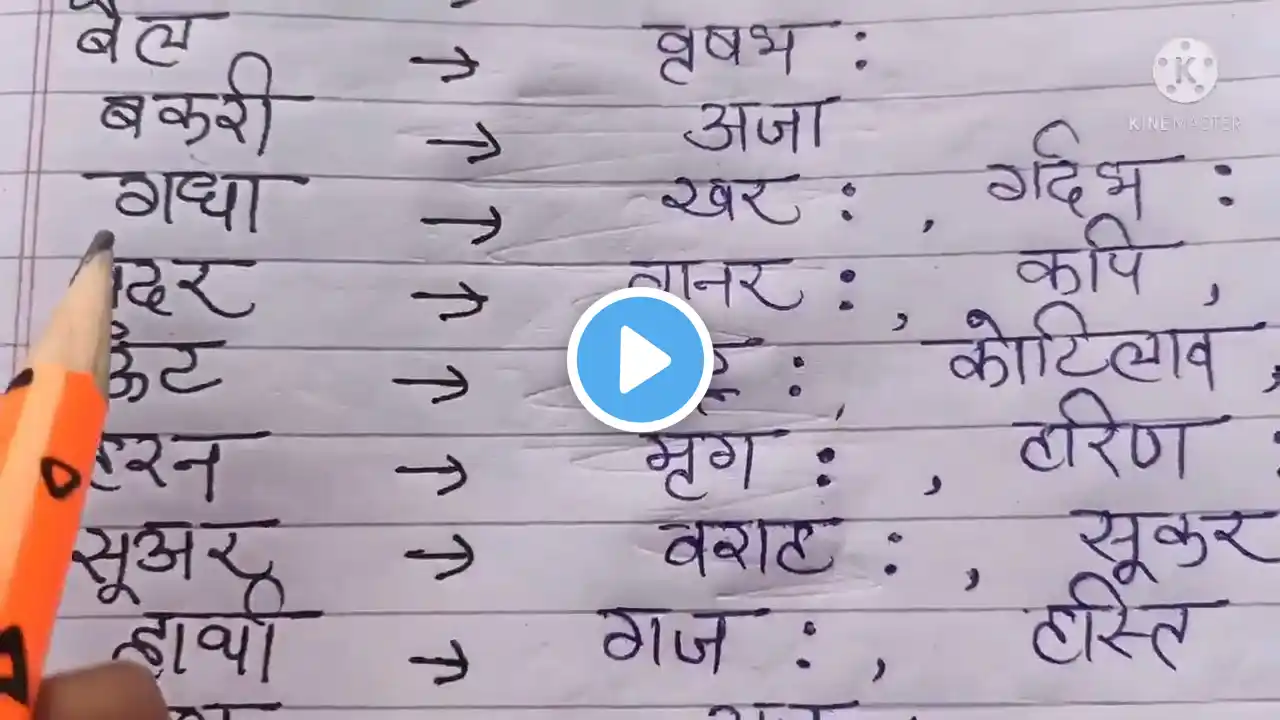 बैल → वृषभ :
बकरी → अजा
गधा → खर : , गर्दभ :
→ वानर : , कपि ,
ऊँट → : , कोटिलाव ,
→ मृग : , हरिण :
सूअर → वराह : , सूकर
हाथी → गज : , हस्ति
KINEMASTER